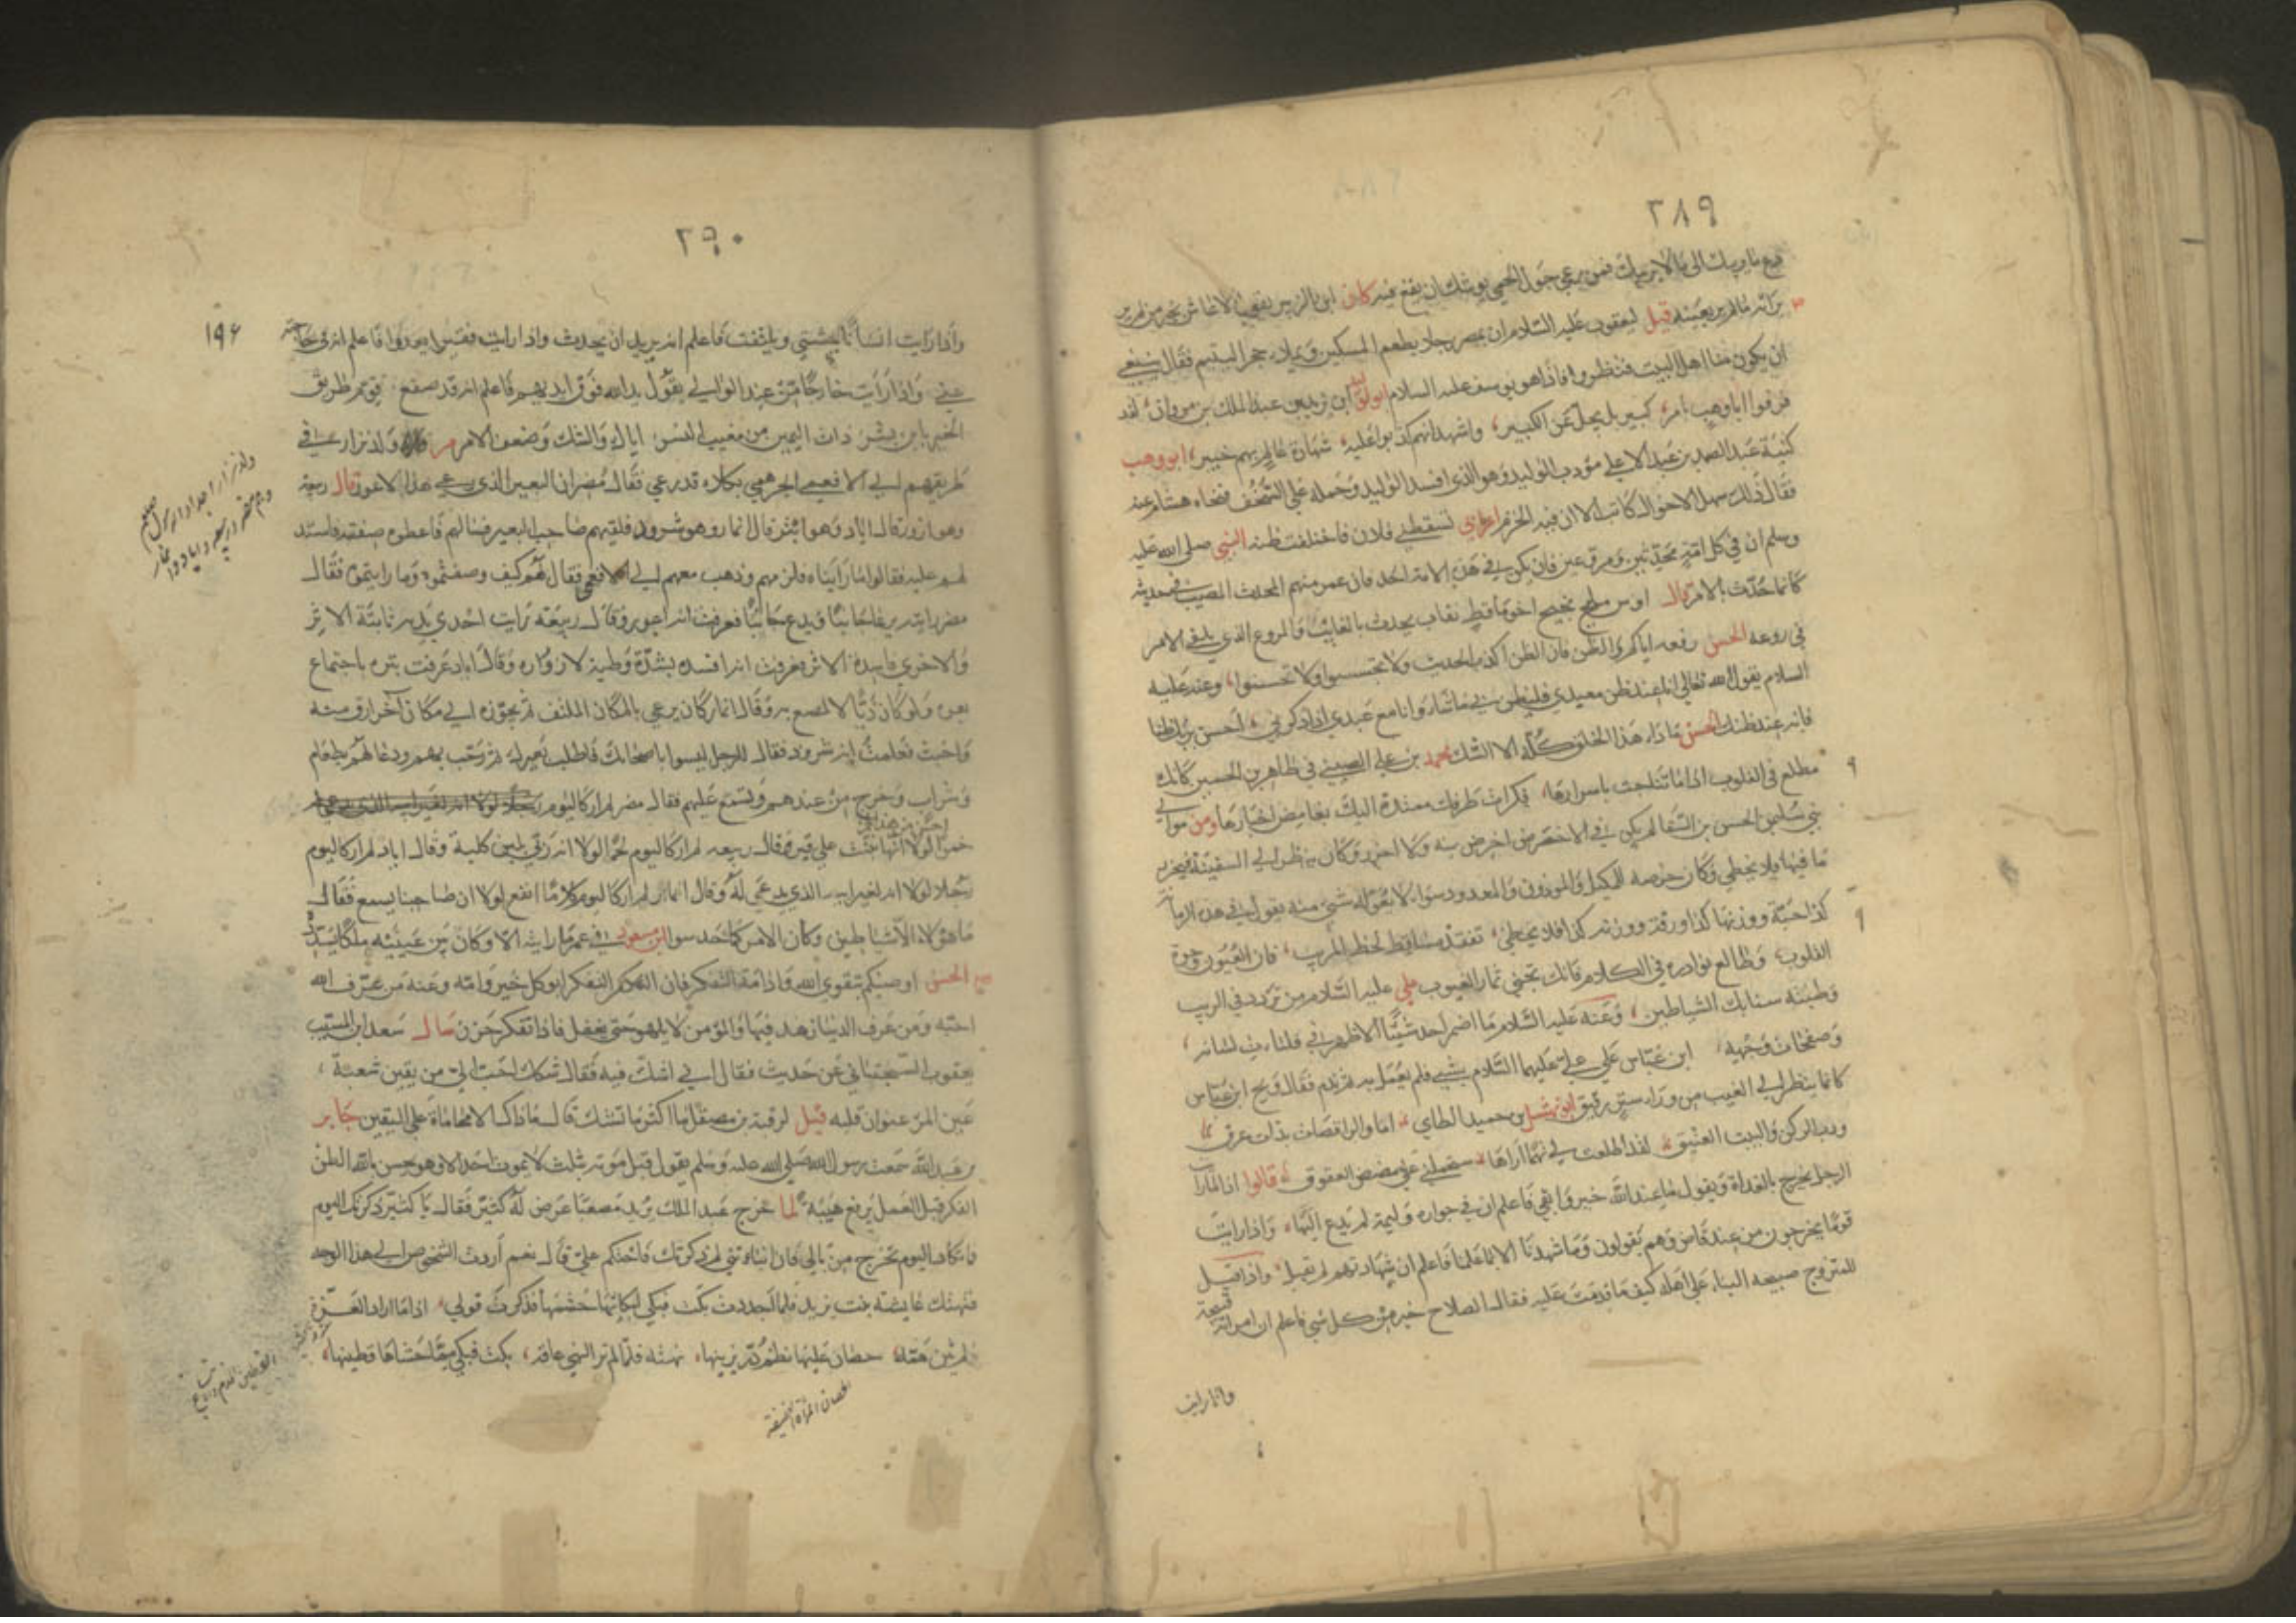 ٢٨٩
دع ما يريبك الى ما لا يريبك فمن يرعى حول الحمى يوشك ان يقع فيه كان ابن الزبير يقول لا عاش بخير من لم ير
برأيه ما لم ير بعينه قيل ليعقوب عليه السلام ان بمصر رجلا يطعم المسكين ويملاء حجر اليتيم فقال ينبغي
ان يكون منا اهل البيت فنظروا فاذا هو يوسف عليه السلام ابن يزيد بن عبد الملك بن مروان لقد
قرفوا ابا وهب بامر كبير بل يجل عن الكبير واشهد انهم كذبوا عليه شهادة عالم بهم خبير ابو وهب
كنية عبد الصمد بن عبد الاعلى مؤدب الوليد وهو الذي افسد الوليد وحمله على التخفف فنحاه هشام عنه
فقال ذلك سهل الاحوال كاتب الا ان فيه الخزم اعرابي تسقطني فلان فاختلفت ظنه النبي صلى الله عليه
وسلم ان في كل امة محدثين ومروعين فان يكن في هذه الامة احد فان عمر منهم المحدث المصيب في حديثه
كانما حدث بالامر قال اوس مليح نجيح اخو مأقط نقاب يحدث بالغائب والمروع الذي يلقى الامر
في روعه الحسن رفعه اياكم والظن فان الظن اكذب الحديث ولا تجسسوا ولا تحسسوا وعنه عليه
السلام يقول الله تعالى انا عند ظن عبدي فليظن بي ما شاء وانا مع عبدي اذا ذكرني احسن بربك الظن
فانه عند ظنك الحسن ما داء هذا الخلق كله الا الشك محمد بن علي الصيني في طاهر بن الحسين كانك
مطلع في القلوب اذا ما تناجت باسرارها فكرات طرفك معتدة اليك بغامض اخبارها ومن موالي
بني سليم الحسن بن السقا لم يكن في الاخضر من اخرص منه ولا احزر وكان ينظر الى السفينة فيحزر
ما فيها فلا يخطي وكان حرصه للمكيل والموزون والمعدود سواء لا يفوته شي منه يقول في هذه الرمانة
كذا حبة ووزنها كذا ورقة ووزنه كذا فلا يخطي تفقد مساقط لحظ المريب فان العيون وجوه
القلوب وطالع بوادره في الكلام فانك تجني ثمار العيوب علي عليه السلام من تردد في الريب
وطئته سنابك الشياطين وعنه عليه السلام ما اضمر احد شيئا الا ظهر في فلتات لسانه
وصفحات وجهه ابن عباس على علي عليهما السلام بشيء فلم يعمل به ثم ندم فقال ويح ابن عباس
كانما ينظر الى الغيب من وراء ستر رقيق ابو نهشل بن حميد الطاي اما والراقصات بذات عرق
ورب الركن والبيت العتيق لقد اطلعت لي تهما اراها ستحملني على مضض العقوق قالوا اذا رأيت
الرجل يخرج بالغداة ويقول ما عند الله خير وابقى فاعلم ان في جواره وليمة لم يدع اليها واذا رايت
قوما يخرجون من عند قاض وهم يقولون وما شهدنا الا بما علمنا فاعلم ان شهادتهم لم تقبل واذا قيل
للمتزوج صبيحة البناء على اهله كيف ما قدمت عليه فقال الصلاح خير من كل شي فاعلم ان امراته قبيحة
واذا رايت
٢٩٠
١٩۶
واذا رايت انسانا يمشي ويلتفت فاعلم انه يريد ان يحدث واذا رايت فقيرا يعدو فاعلم انه في حاجة
غني واذا رايت خارجا من عند الوالي يقول يد الله فوق ايديهم فاعلم انه قد صفع قوم طريق
الخير يابن بشر ذات اليمين من مغيب الشمس اياك والشك وضعف الامر مر ولد نزار في
طريقهم الى الافعى الجرهمي بكلاء قد رعي فقال مضر ان البعير الذي رعى هذا لاعور قال ربيعة
وهو ازور قال اياد وهو ابتر قال انمار وهو شرود فلقيهم صاحب البعير فسالهم فاعطوه صفته فاستد
لهم عليه فقالوا ما رايناه فلزمهم وذهب معهم الى الافعى فقال لهم كيف وصفتموه وما رايتموه فقال
مضر رايته يرعى جانبا ويدع جانبا فعرفت انه اعور وقال ربيعة رايت احدى يديه ثابتة الاثر
والاخرى فاسدة الاثر فعرفت انه افسده بشدة وطئه لازوراره وقال اياد عرفت بتره باجتماع
بعره ولو كان ذيالا لمصع به وقال انمار كان يرعى بالمكان الملتف ثم يجوزه الى مكان آخر ارق منه
واخبث فعلمت انه شرود فقال للرجل ليسوا باصحابك فاطلب بعيرك ثم رحب بهم ودعا لهم بطعام
وشراب وخرج من عندهم وتسمع عليهم فقال مضر لم ار كاليوم
خمرا لولا انها نبتت على قبر وقال ربيعه لم ار كاليوم لحما لولا انه ربي بلبن كلبة وقال اياد لم ار كاليوم
رجلا لولا انه لغير ابيه الذي يدعى له وقال انمار لم ار كاليوم كلاما انفع لولا ان صاحبنا يسمع فقال
ما هؤلاء الا شياطين وكان الامر كما حدسوا ابن مسعود في عمر ما رايته الا وكان بين عينيه ملكا يسدده
الحسن اوصيكم بتقوى الله وادامة التفكر فان التفكر ابو كل خير وامه وعنه من عرف الله
احبه ومن عرف الدنيا زهد فيها والمؤمن لا يلهو حتى يغفل فاذا تفكر حزن سال سعد ابن المسيب
يعقوب السختياني عن حديث فقال اني اشك فيه فقال شكك احب الي من يقين شعبة
عين المرء عنوان قلبه قيل لرقبة بن مصقلة ما اكثر ما تشك قال ما ذاك الا محاماة على اليقين جابر
بن عبد الله سمعت رسول الله صلى الله عليه وسلم يقول قبل موته بثلث لا يموتن احد الا وهو حسن بالله الظن
الفكر قبل العمل يرفع هيبة لما خرج عبد الملك يريد مصعبا عرض له كثير فقال يا كثير ذكرتك اليوم
فانك اليوم تخرج من بالي فان انبأتني لم ذكرتك فاحتكم علي قال نعم اردت الشخوص الى هذا الوجه
فنهتك عاتكة بنت يزيد فلما لججت بكت فبكى لبكائها حشمها فذكرت قولي اذا ما اراد الغزو
لم تثن همه حصان عليها نظم در يزينها نهته فلما لم تر النهي عاقه بكت فبكى مما شجاها قطينها
ولد نزار اجداد الرسول صلعم
وهم مضر وربيعه واياد وانمار
احسن من هذا
الحصان المراة العفيفة
القطين الخدم والاتباع